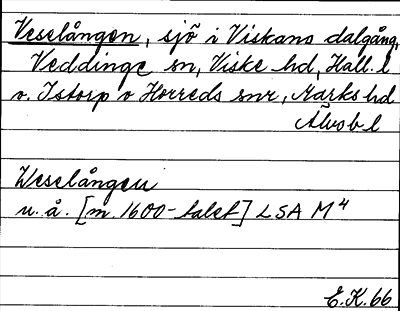 Veselången, sjö i Viskans dalgång,
Veddinge sn, Viske hd, Hall. l
o. Istorp o Horreds snr, Marks hd
Älvsb l
Weselången
u. å. [m. 1600-talet] LSA M4
E.K.66